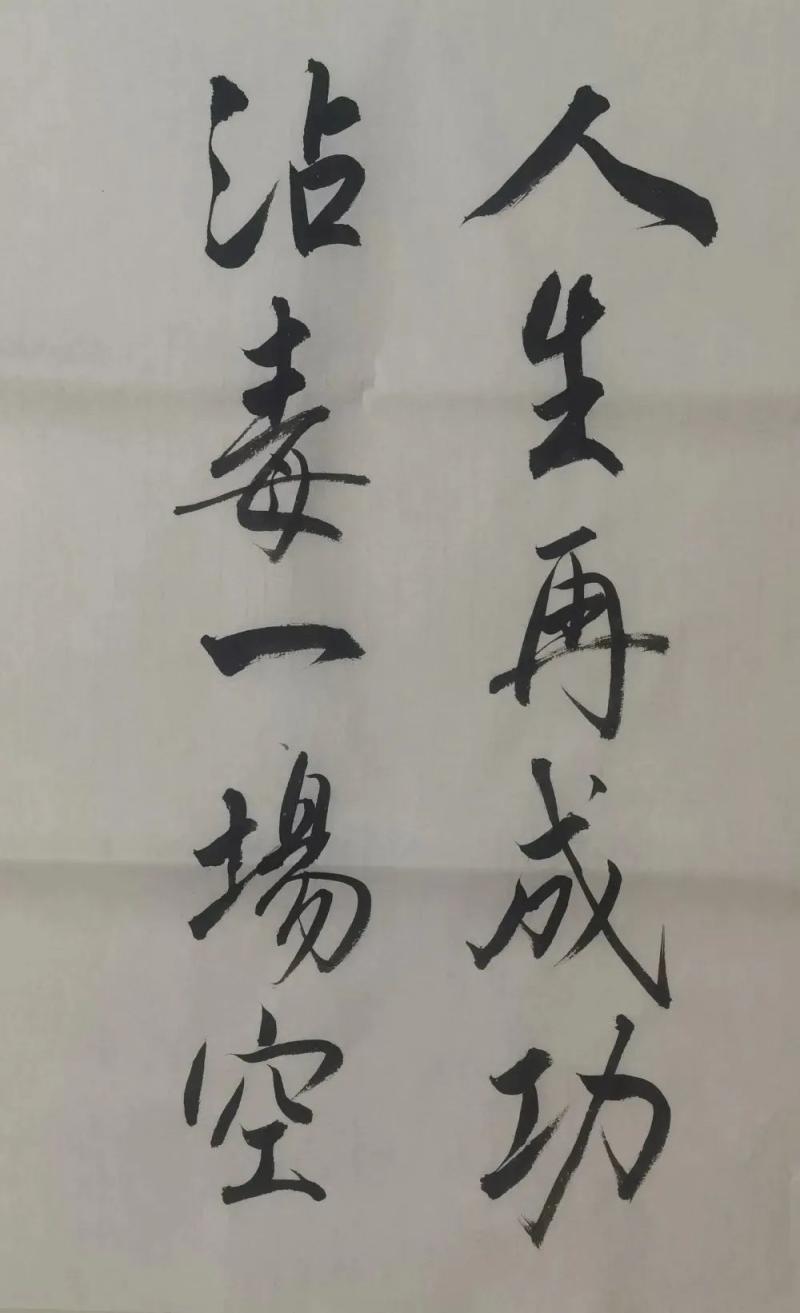 人生再成功
沾毒一場空